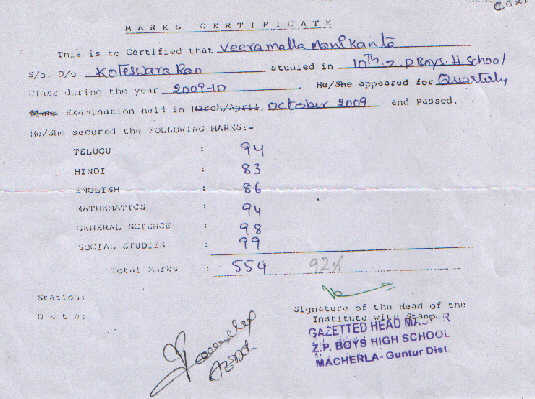 MARKS CERTIFICATE
This is to Certified that Veeramalla Manikanta
S/o. D/o Koteswara Rao studied in 10th, Z.P Boys. H. School
Class during the year 2009-10 He/She appeared for Quarterly
Examination held in March/April October 2009 and Passed.
He/She secured the FOLLOWING MARKS:-
TELUGU : 94
HINDI : 83
ENGLISH : 86
MATHEMATICS : 94
GENERAL SCIENCE : 98
SOCIAL STUDIES : 99
Total Marks : 554 92%
Station:
Date:
Signature of the Head of the
Institute with Stamp
GAZETTED HEAD MASTER
Z.P. BOYS HIGH SCHOOL
MACHERLA - Guntur Dist.